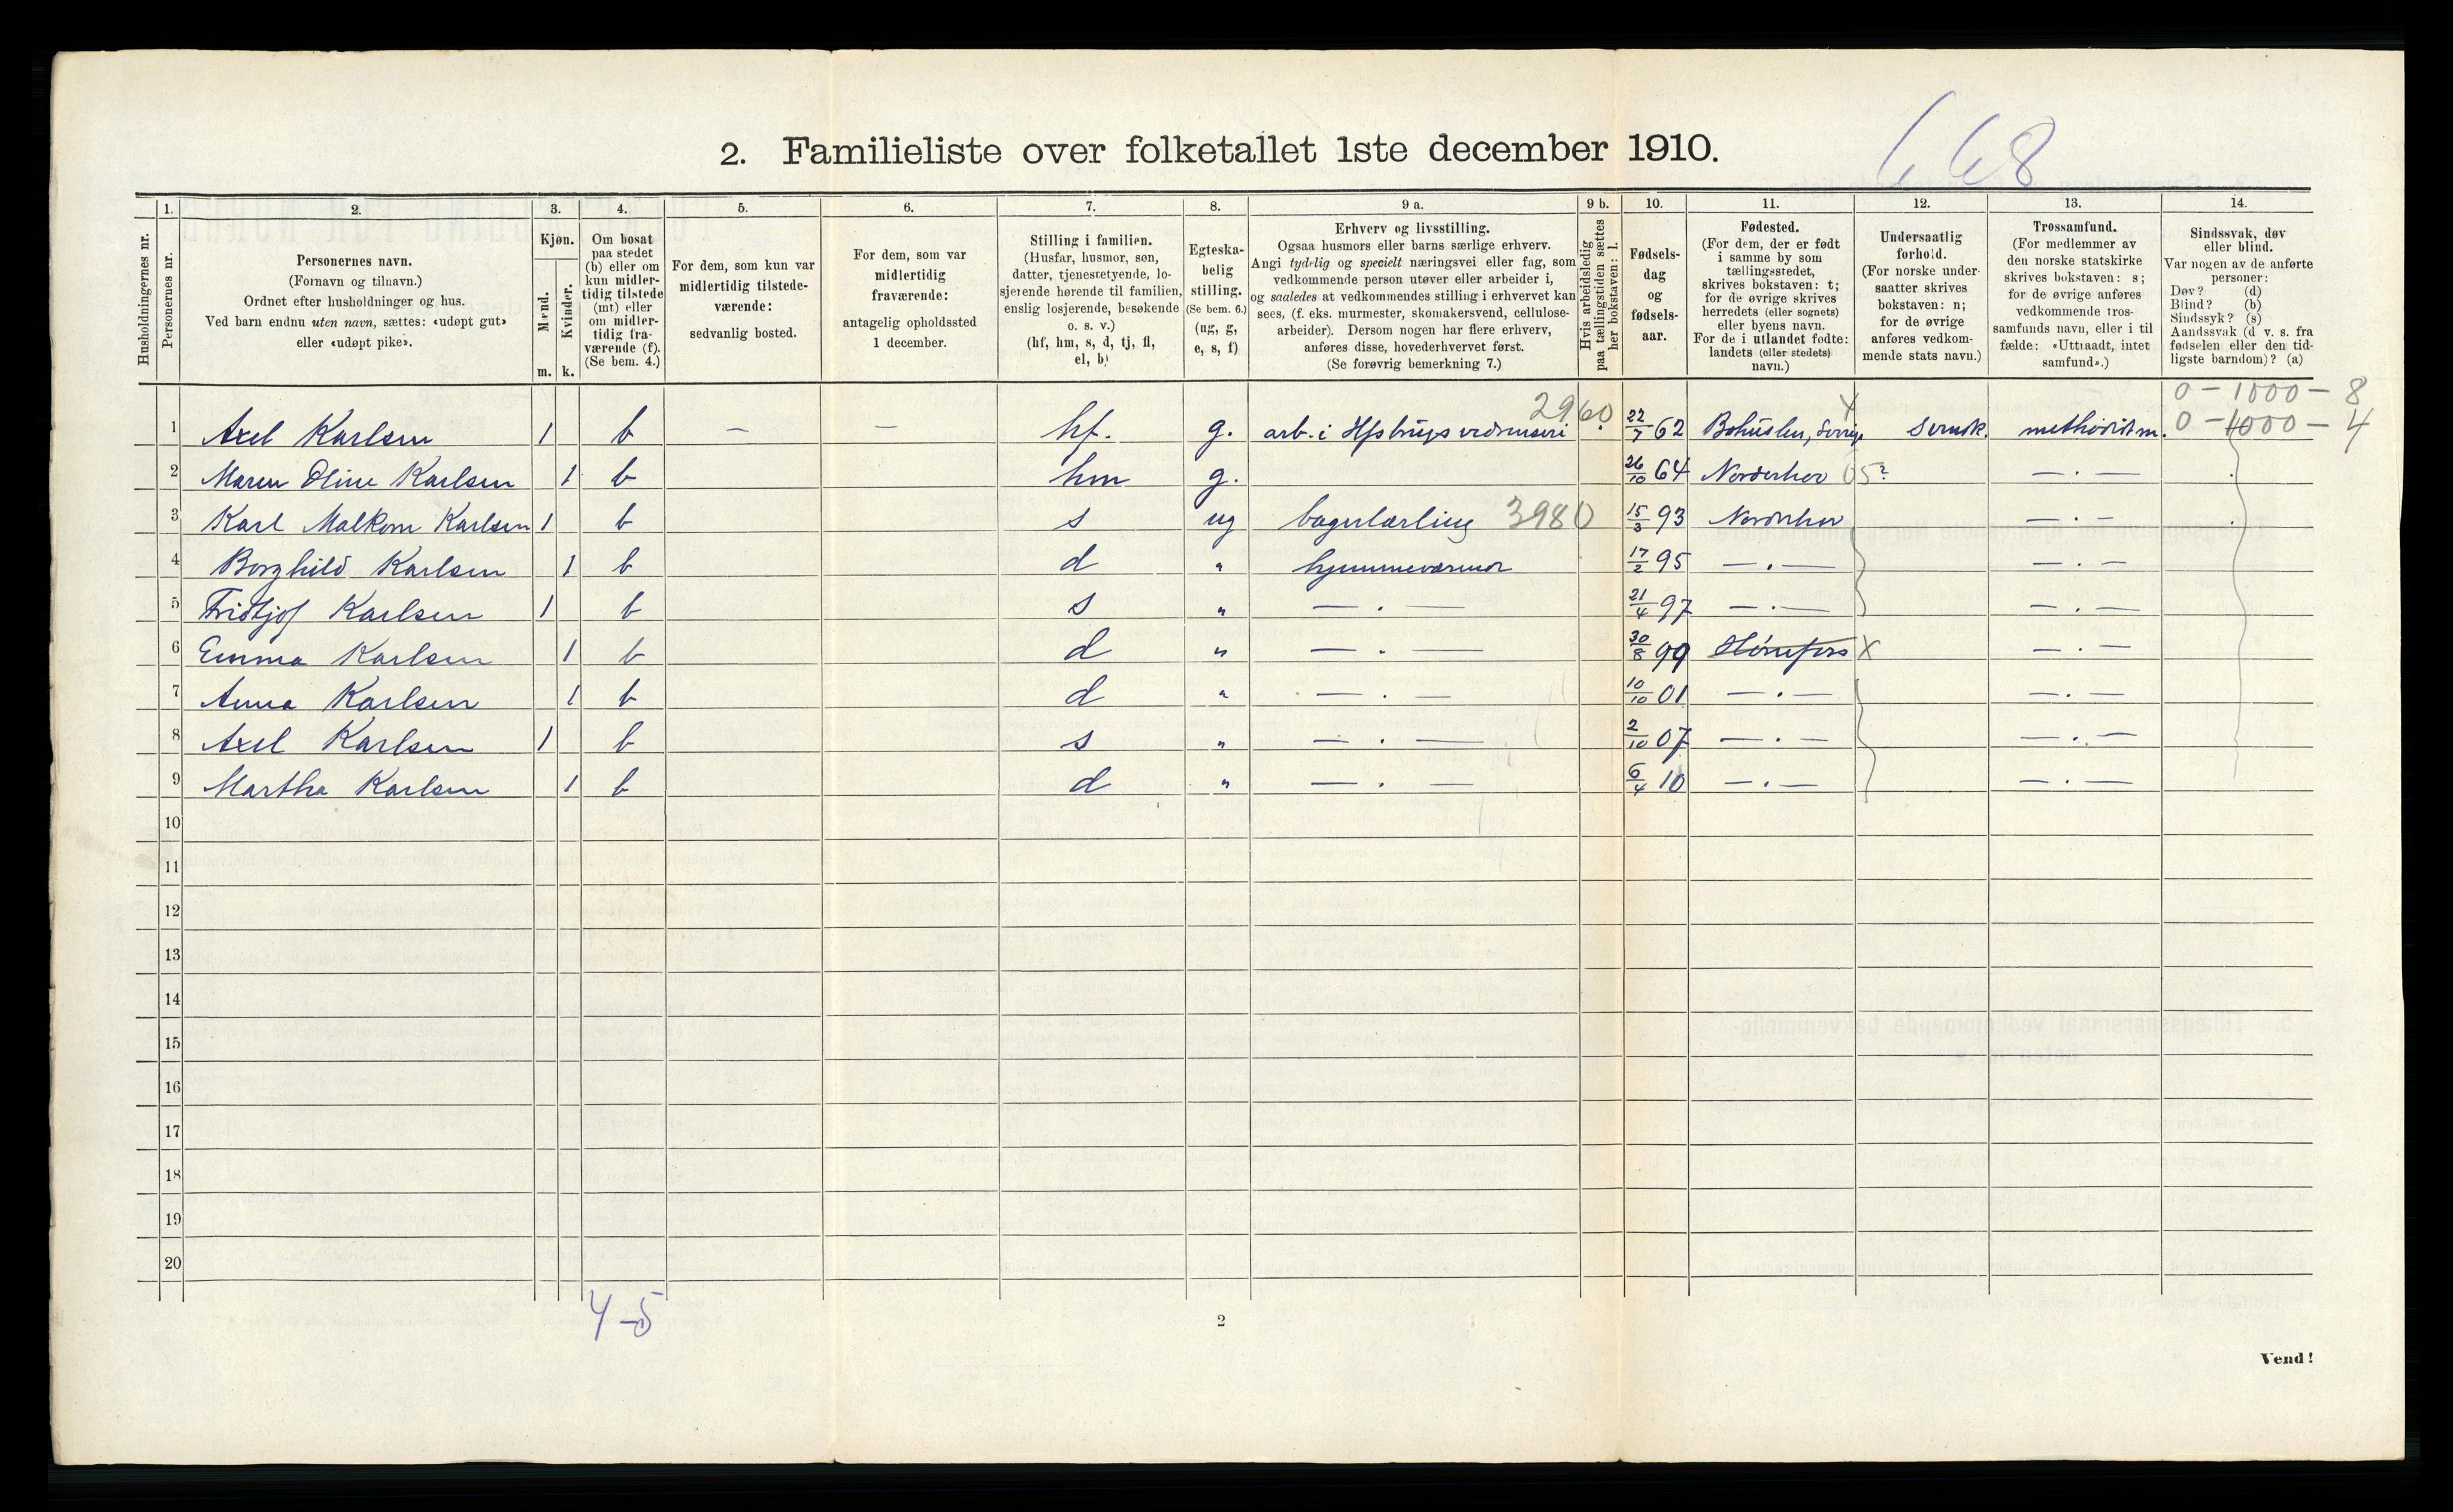 668
2. Familieliste over folketallet 1ste december 1910.
Husholdningernes nr.
1. Personernes nr.
2. Personernes navn.
(Fornavn og tilnavn.)
Ordnet efter husholdninger og hus.
Ved barn endnu uten navn, sættes: «udøpt gut»
eller «udøpt pike».
3. Kjøn.
Mænd. Kvinder.
m. k.
4. Om bosat
paa stedet
(b) eller om
kun midler-
tidig tilstede
(mt) eller
om midler-
tidig fra-
værende (f).
(Se bem. 4.)
5. For dem, som kun var
midlertidig tilstede-
værende:
sedvanlig bosted.
6. For dem, som var
midlertidig
fraværende:
antagelig opholdssted
1 december.
7. Stilling i familien.
(Husfar, husmor, søn,
datter, tjenestetyende, lo-
sjerende hørende til familien,
enslig losjerende, besøkende
o. s. v.)
(hf, hm, s, d, tj, fl,
el, b)
8. Egteska-
belig
stilling.
(Se bem. 6.)
(ug, g,
e, s, f)
9 a. Erhverv og livsstilling.
Ogsaa husmors eller barns særlige erhverv.
Angi tydelig og specielt næringsvei eller fag, som
vedkommende person utøver eller arbeider i,
og saaledes at vedkommendes stilling i erhvervet kan
sees, (f. eks. murmester, skomakersvend, cellulose-
arbeider). Dersom nogen har flere erhverv,
anføres disse, hovederhvervet først.
(Se forøvrig bemerkning 7.)
9 b. Hvis arbeidsledig
paa tællingstiden sættes
her bokstaven: l.
10. Fødsels-
dag
og
fødsels-
aar.
11. Fødested.
(For dem, der er født
i samme by som
tællingsstedet,
skrives bokstaven: t;
for de øvrige skrives
herredets (eller sognets)
eller byens navn.
For de i utlandet fødte:
landets (eller stedets)
navn.)
12. Undersaatlig
forhold.
(For norske under-
saatter skrives
bokstaven: n;
for de øvrige
anføres vedkom-
mende stats navn.)
13. Trossamfund.
(For medlemmer av
den norske statskirke
skrives bokstaven: s;
for de øvrige anføres
vedkommende tros-
samfunds navn, eller i til
fælde: «Uttraadt, intet
samfund».)
14. Sindssvak, døv
eller blind.
Var nogen av de anførte
personer:
Døv? (d)
Blind? (b)
Sindssyk? (s)
Aandssvak (d v. s. fra
fødselen eller den tid-
ligste barndom)? (a)
0 - 1000 - 8
2960
1 Axel Karlsen 1 b — — hf. g. arb. i 22/7 62 Svensk. methodistm. 0 - 4000 - 4
2 Maren Oline Karlsen 1 b hm g. 26/10 64 Norderhov 05? — . —
3 Karl Malkom Karlsen 1 b s ug bagerlærling 3980 15/3 93 Norderhov — . —
4 Borghild Karlsen 1 b d " hjemmeværende 17/2 95 — . — — . —
5 Fridtjof Karlsen 1 b s " — . — 21/4 97 — . — — . —
6 Emma Karlsen 1 b d " — . — 30/8 99 Hønefoss X — . —
7 Anna Karlsen 1 b d " — . — 10/10 01 — . — — . —
8 Axel Karlsen 1 b s " — . — 2/10 07 — . — — . —
9 Martha Karlsen 1 b d " — . — 6/4 10 — . — — . —
10
11
12
13
14
15
16
17
18
19
20
4-5
2
Vend!